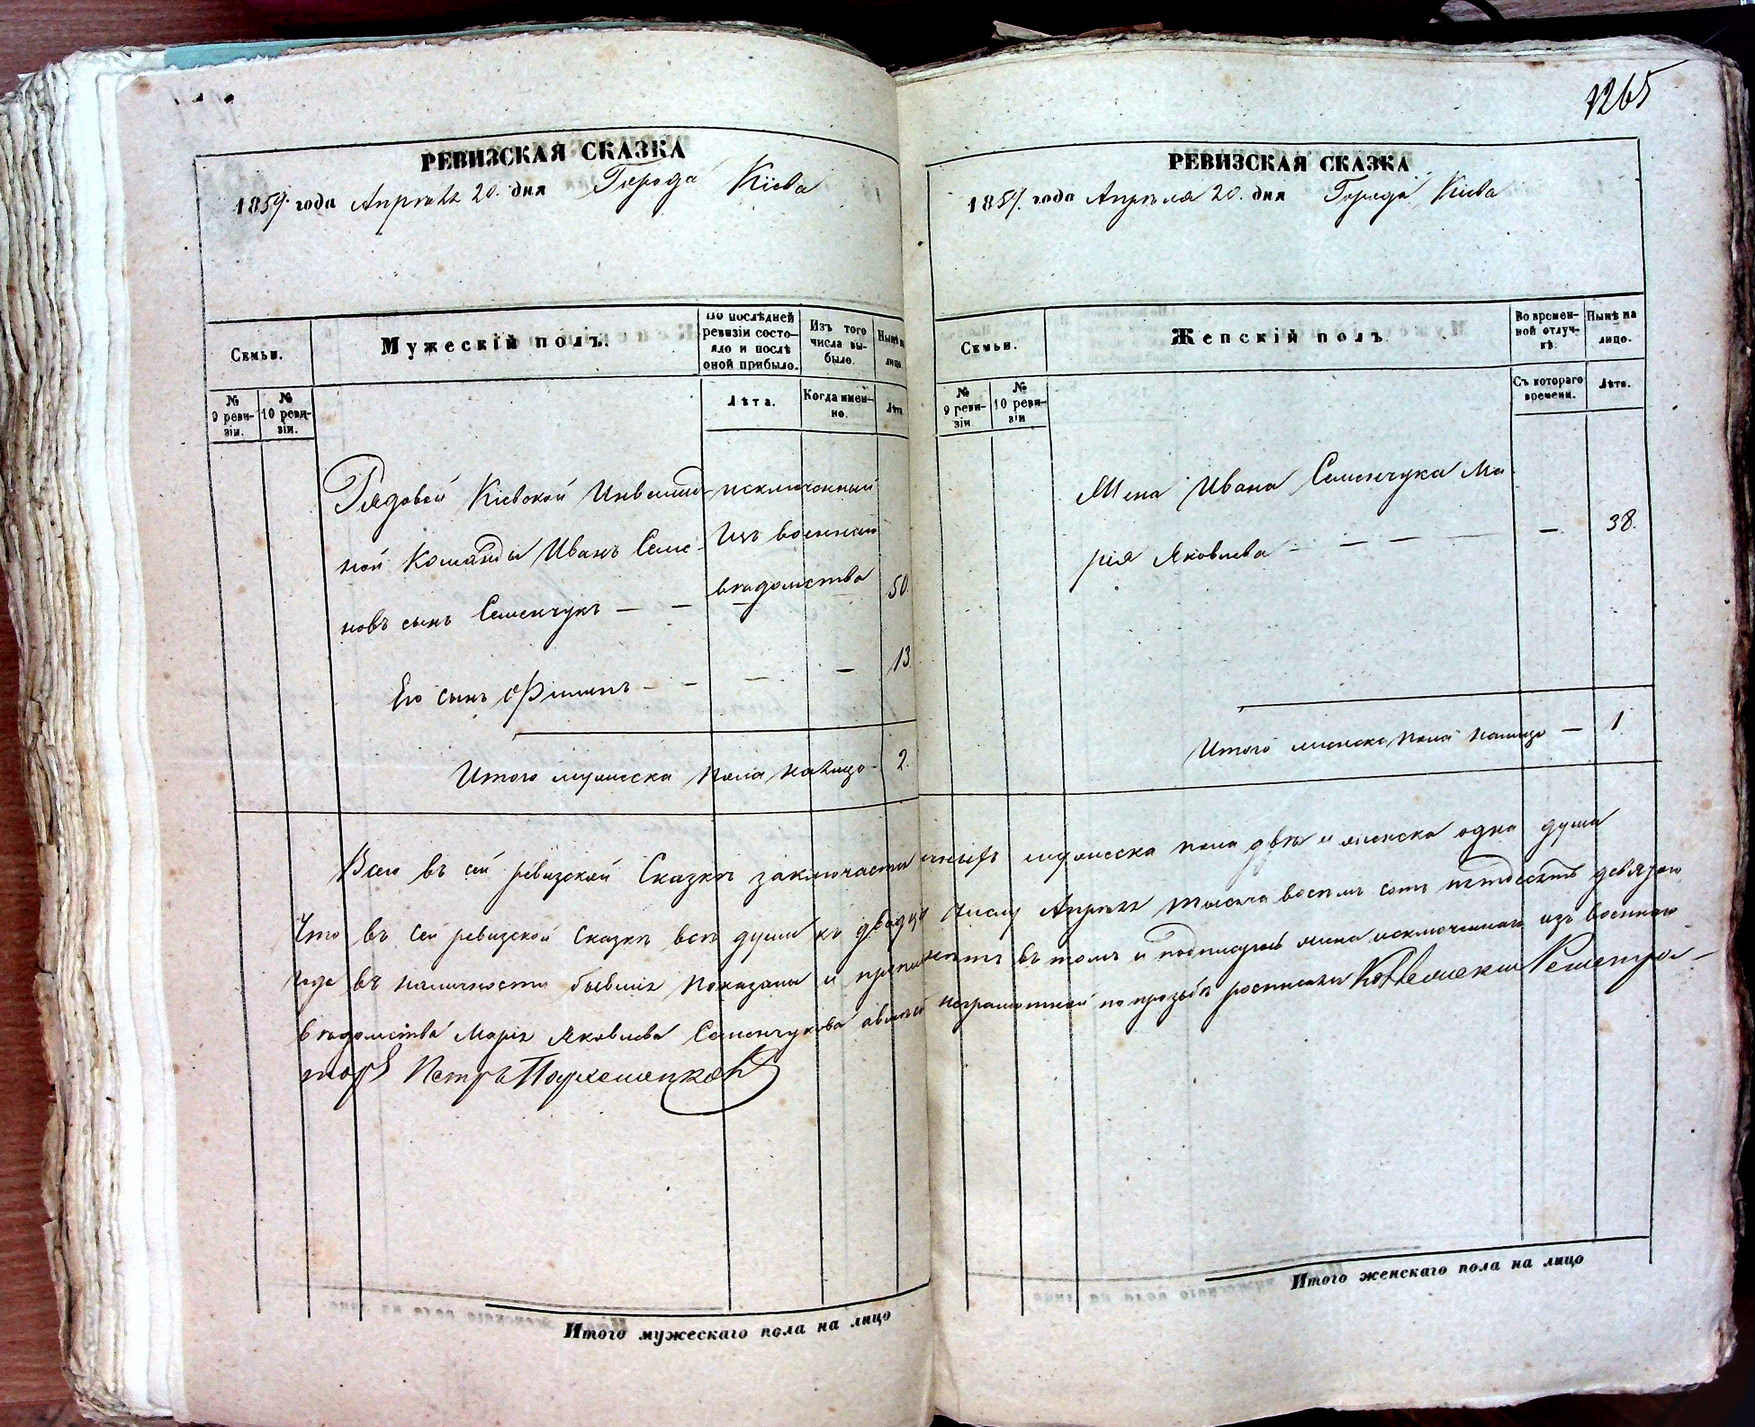 1265
РЕВИЗСКАЯ СКАЗКА
1859. года Апреля 20. дня Города Кіева
Семьи.
Мужескій полъ.
По послѣдней ревизіи состояло и послѣ оной прибыло.
Изъ того числа выбыло.
Нынѣ на лицо
№ 9 ревизіи.
№ 10 ревизіи.
Лѣта.
Когда именно.
Лѣта
Рядовой Кіевской Инвалид- исключенный
ной Команды Иванъ Семе- изъ военнаго
новъ сынъ Семенчукъ — — вѣдомства 50.
Его сынъ Филипъ — — — — 13.
Итого мужеска пола налицо — 2.
РЕВИЗСКАЯ СКАЗКА
1859. года Апреля 20. дня Города Кіева
Семьи.
Женскій полъ.
Во временной отлучкѣ.
Нынѣ на лицо.
№ 9 ревизіи
№ 10 ревизіи
Съ котораго времени.
Лѣта.
Жена Ивана Семенчука Ма-
рія Яковлева — — — — — 38.
Итого женска пола налицо — 1
Всего въ сей ревизской Сказкѣ заключается мужеска пола двѣ и женска одна душа
Что въ сей ревизской Сказкѣ всѣ души къ двадцатому числу Апреля тысяча восемь сотъ пятдесятъ девятаго
года въ наличности бывшія показаны и въ томъ и подписуюсь жена исключеннаго изъ военнаго
вѣдомства Марія Яковлева Семенчукова а вмѣсто неграмотной по прозьбѣ росписался Регистра-
торъ Петръ
Итого мужескаго пола на лицо
Итого женскаго пола на лицо